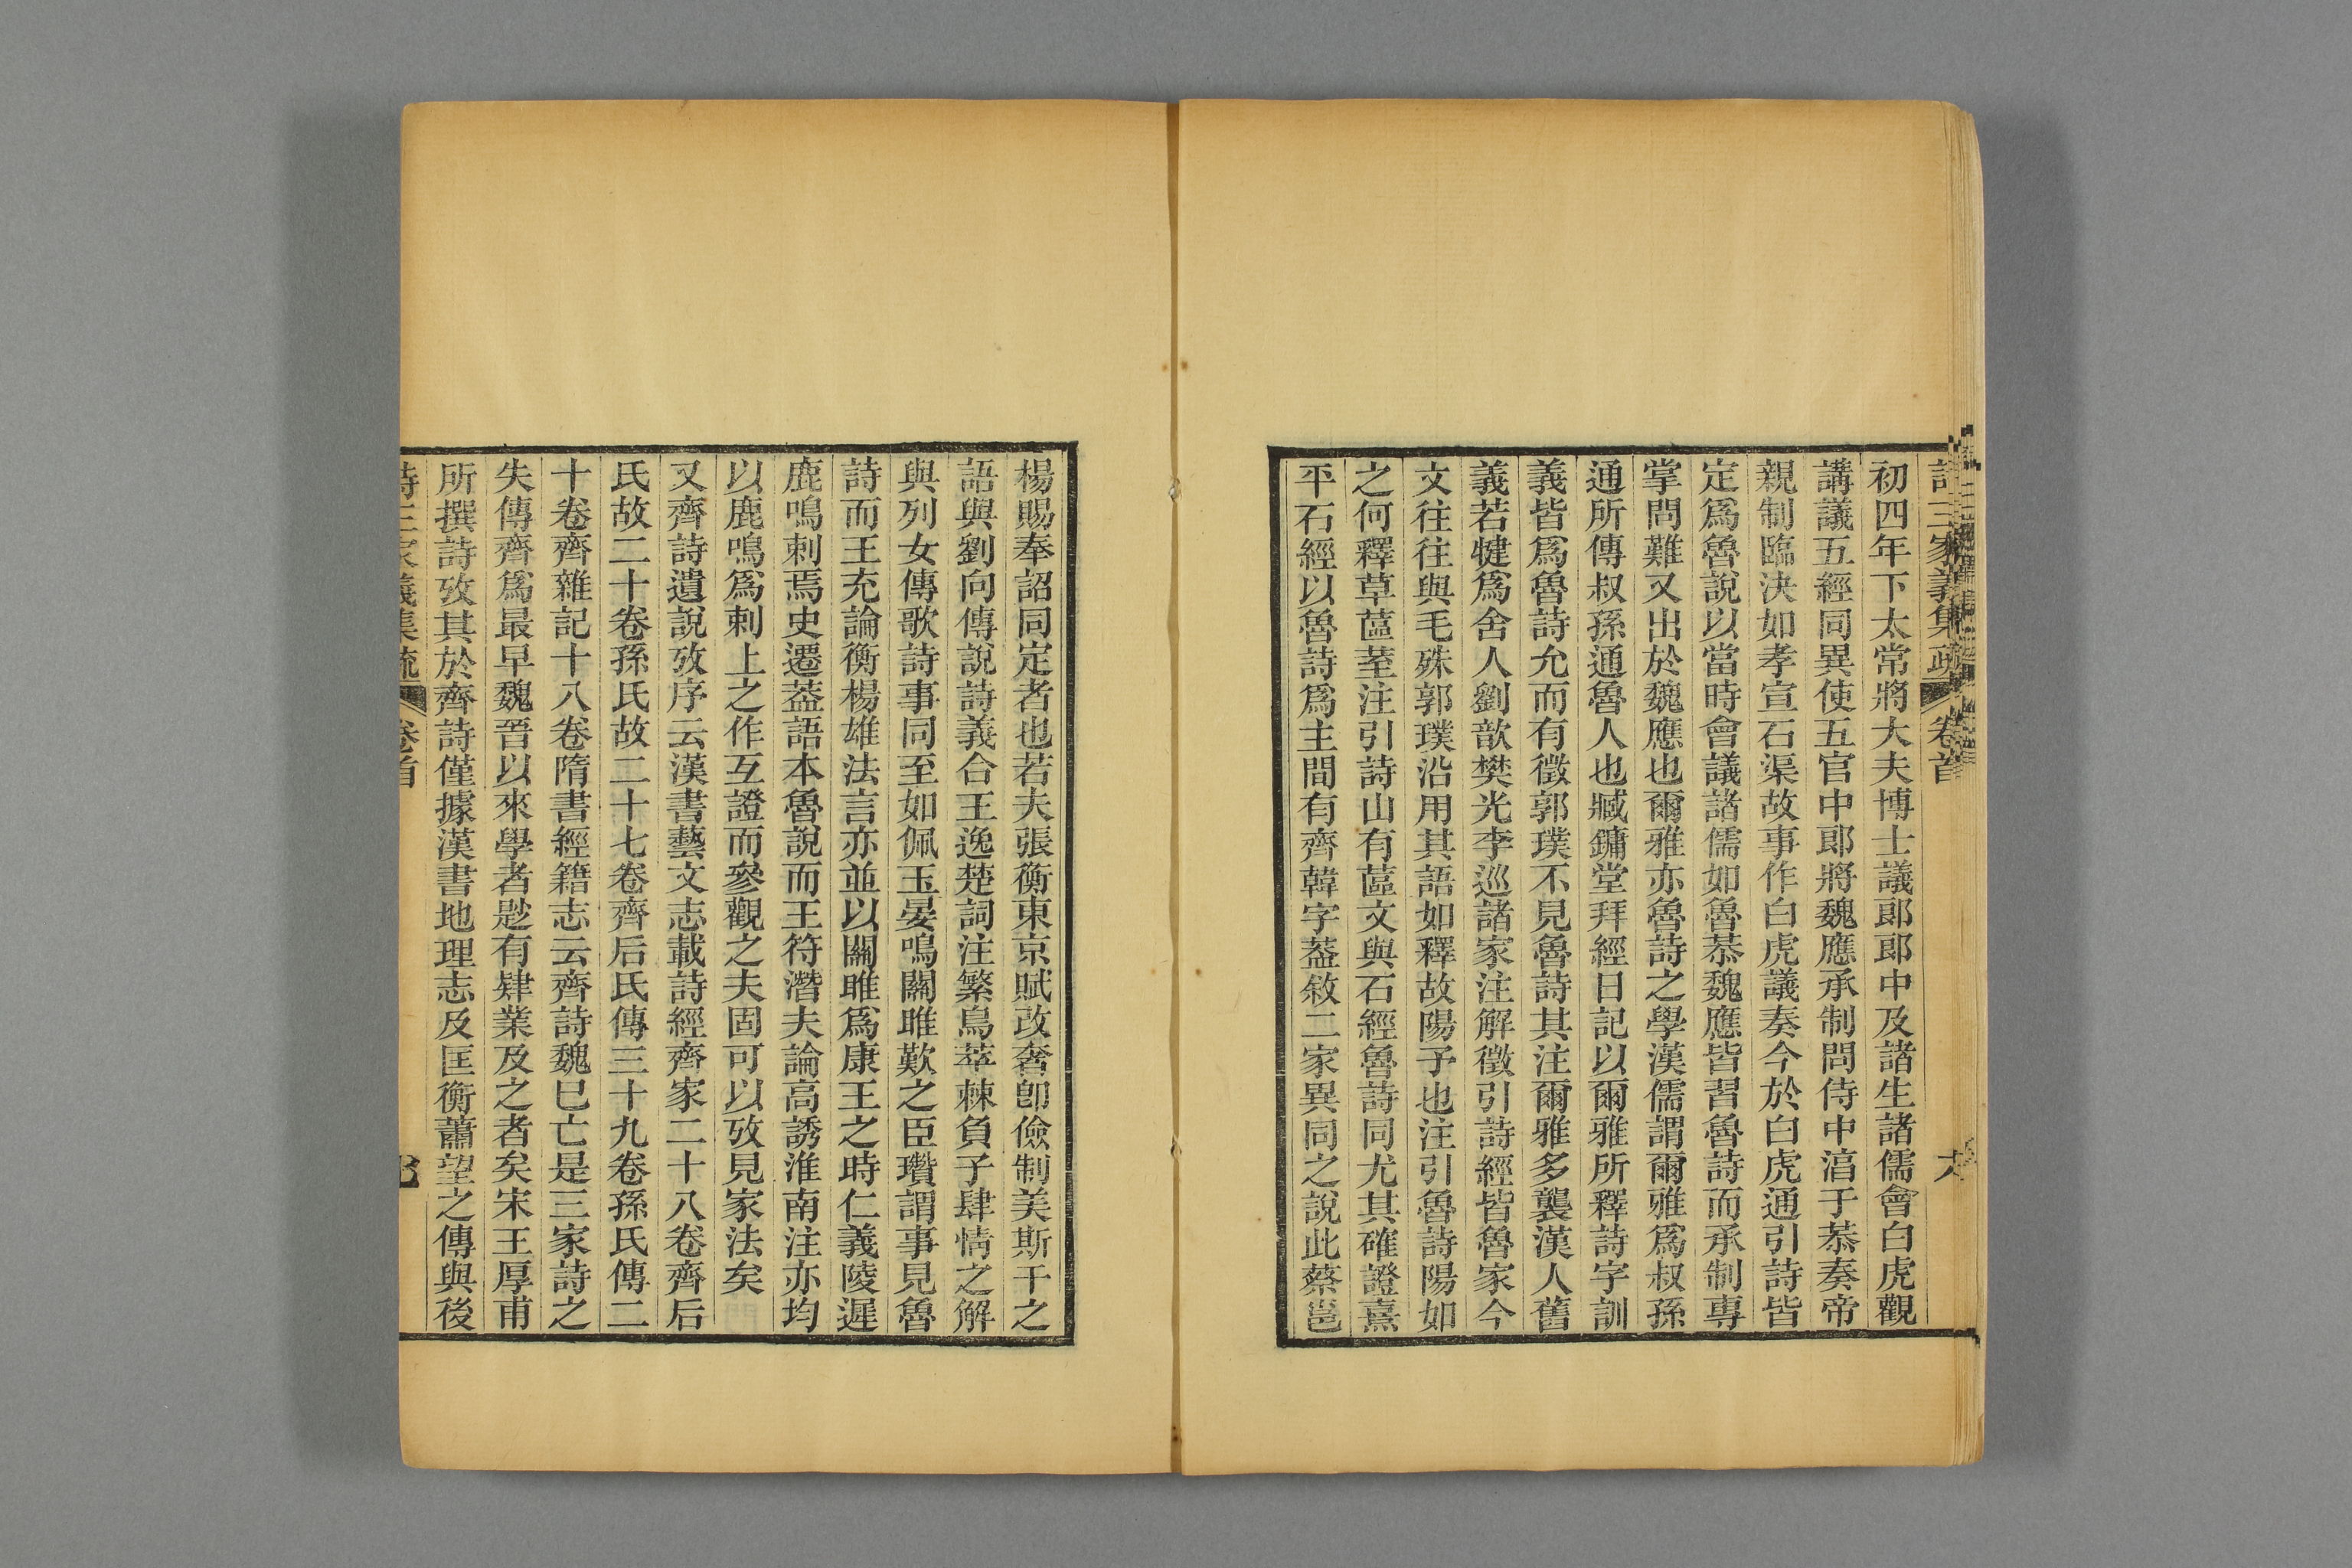 詩三家義集疏 卷首
初四年下太常將大夫博士議郎郎中及諸生諸儒會白虎觀
講議五經同異使五官中郎將魏應承制問侍中淳于恭奏帝
親制臨決如孝宣石渠故事作白虎議奏今於白虎通引詩皆
定爲魯說以當時會議諸儒如魯恭魏應皆習魯詩而承制專
掌問難又出於魏應也爾雅亦魯詩之學漢儒謂爾雅爲叔孫
通所傳叔孫通魯人也臧鏞堂拜經日記以爾雅所釋詩字訓
義皆爲魯詩允而有徵郭璞不見魯詩其注爾雅多襲漢人舊
義若犍爲舍人劉歆樊光李巡諸家注解徵引詩經皆魯家今
文往往與毛殊郭璞沿用其語如釋故陽予也注引魯詩陽如
之何釋草蓲荎注引詩山有蓲文與石經魯詩同尤其確證熹
平石經以魯詩爲主間有齊韓字葢敘二家異同之說此蔡邕
楊賜奉詔同定者也若夫張衡東京賦改奢卽儉制美斯干之
語與劉向傳說詩義合王逸楚詞注繁鳥萃棘負子肆情之解
與列女傳歌詩事同至如佩玉晏鳴關雎歎之臣瓚謂事見魯
詩而王充論衡楊雄法言亦並以關雎爲康王之時仁義陵遲
鹿鳴刺焉史遷葢語本魯說而王符潛夫論高誘淮南注亦均
以鹿鳴爲刺上之作互證而參觀之夫固可以攷見家法矣
又齊詩遺說攷序云漢書藝文志載詩經齊家二十八卷齊后
氏故二十卷孫氏故二十七卷齊后氏傳三十九卷孫氏傳二
十卷齊雜記十八卷隋書經籍志云齊詩魏巳亡是三家詩之
失傳齊爲最早魏晉以來學者尟有肄業及之者矣宋王厚甫
所撰詩攷其於齊詩僅據漢書地理志及匡衡蕭望之傳與後
詩三家義集疏 卷首